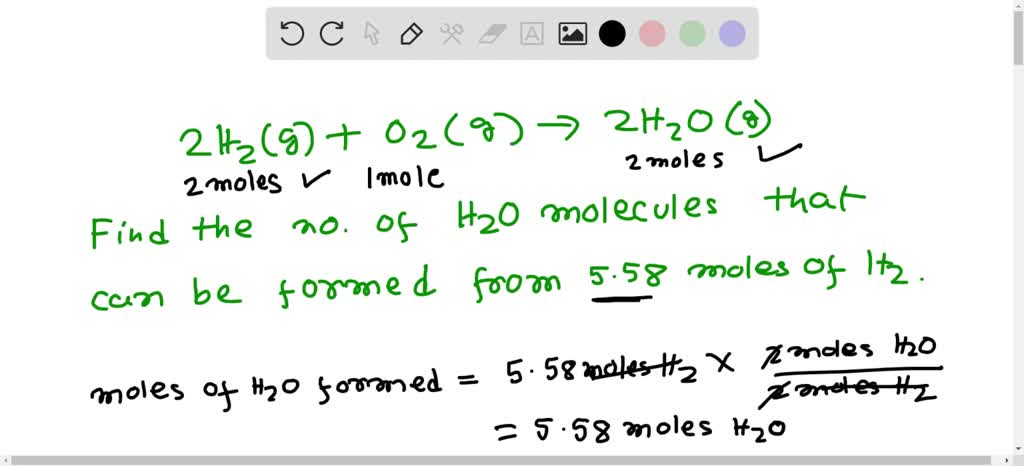 A
2H2(g) + O2(g) → 2H2O(g)
2 moles ✓ 1 mole 2 moles ✓
Find the no. of H2O molecules that
can be formed from 5.58 moles of H2.
moles of H2O formed = 5.58 moles H2 × 2 moles H2O
2 moles H2
= 5.58 moles H2O